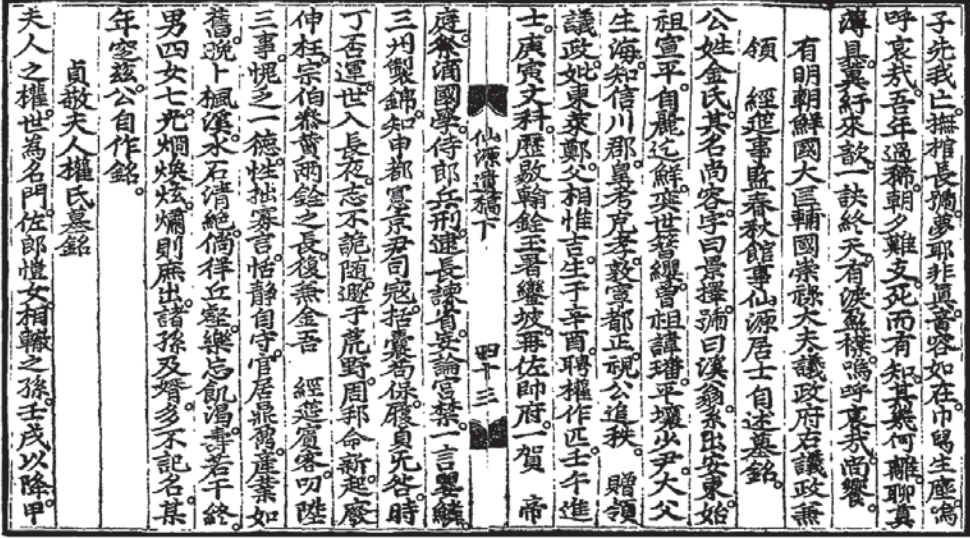 子先我亡。撫棺長號。夢耶非眞。音容如在。巾舃生塵。嗚
呼哀哉。吾年過稀。朝夕難支。死而有知。其幾何離。聊眞
薄具。異紆來歆。一訣終天。有淚盈襟。嗚呼哀哉。尙饗。
有明朝鮮國大匡輔國崇祿大夫議政府右議政兼
領　經筵事監春秋館事仙源居士自述墓銘。
公姓金氏。其名尙容。字曰景擇。號曰溪翁。系出安東。始
祖宣平。自麗迄鮮。奕世簪纓。曾祖諱璠。平壤少尹。大父
生海。知信川郡。皇考克孝。敦寧都正。視公追秩。　贈領
議政。妣東萊鄭。父相惟吉。生于辛酉。聘權作匹。壬午進
士。庚寅文科。歷敭翰銓。玉署鑾坡。再佐帥府。一賀　帝
仙源遺稿下　四十三
庭。祭酒國學。侍郎兵刑。逮長諫省。妄論宮禁。一言嬰鱗。
三州製錦。知申都憲。京尹司寇。括囊苟保。履貞旡咎。時
丁否運。世入長夜。志不詭隨。遯于荒野。周邦命新。起廢
伸枉。宗伯叅賛。兩銓之長。復兼金吾　經筵賓客。叨陞
三事。愧乏一德。性拙寡言。恬靜自守。官居鼎鼐。產業如
舊。晩卜楓溪。水石淸絶。倘徉丘壑。樂忘飢渴。壽若干終。
男四女七。光烱煥炫。爥則庶出。諸孫及婿。多不記名。某
年窆玆。公自作銘。
貞敬夫人權氏墓銘
夫人之權。世爲名門。佐郎愷女。相轍之孫。壬戌以降。甲